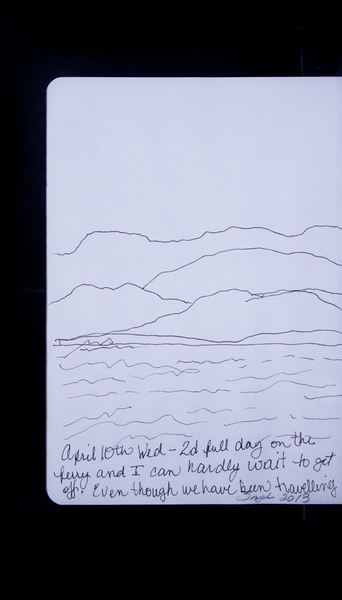 April 10th Wed - 2d full day on the
ferry and I can hardly wait to get
off! Even though we have been travelling
2013